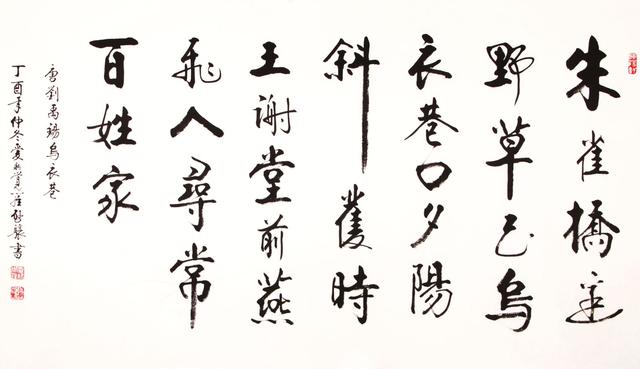 朱雀橋邊
野草花烏
衣巷口夕陽
斜舊時
王謝堂前燕
飛入尋常
百姓家
唐劉禹錫烏衣巷
丁酉年仲冬愛新覺羅書